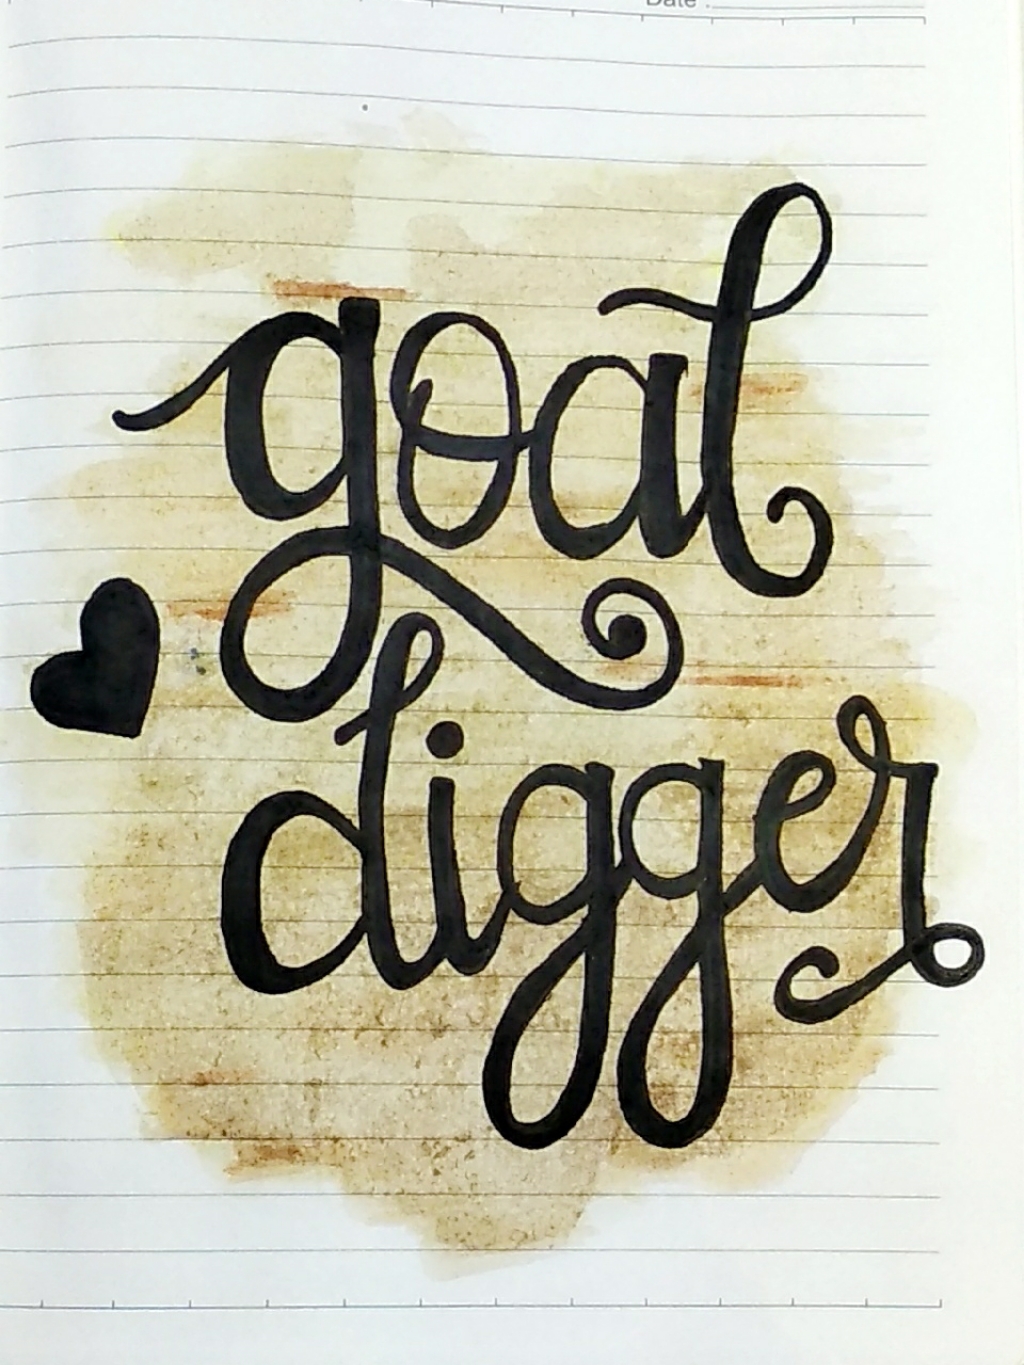 Date :
goal
digger